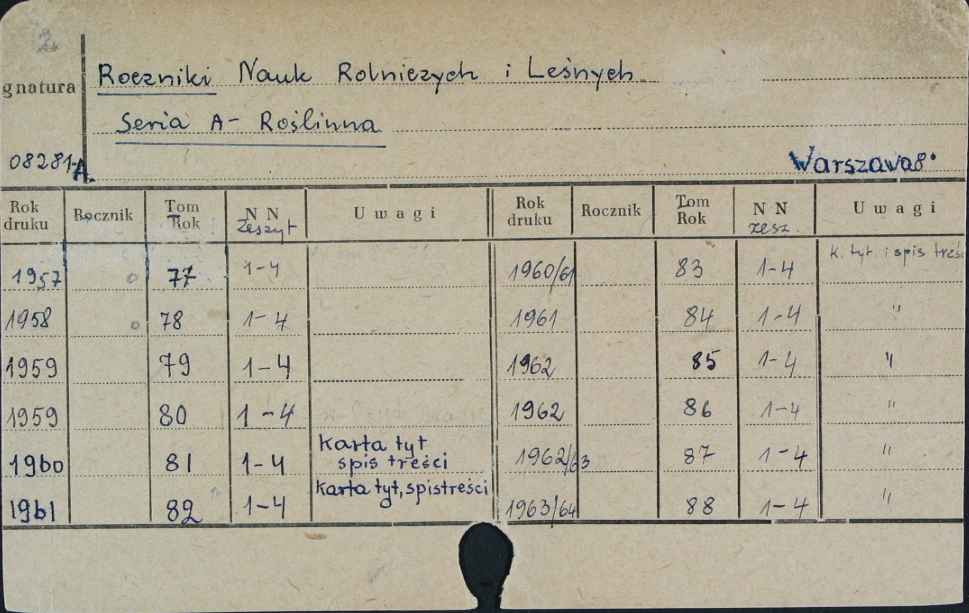 Roczniki Nauk Rolniczych i Leśnych
gnatura
Seria A- Roślinna
08281-A.
Warszawa
Rok druku Rocznik Tom Rok N N Zeszyt Uwagi Rok druku Rocznik Tom Rok N N zesz. Uwagi
1957 77 1-4 1960/61 83 1-4 k. tyt. i spis treśc
1958 78 1-4 1961 84 1-4 "
1959 79 1-4 1962 85 1-4 "
1959 80 1-4 1962 86 1-4 "
1960 81 1-4 karta tyt spis treści 1962/63 87 1-4 "
1961 82 1-4 karta tyt, spis treści 1963/64 88 1-4 "